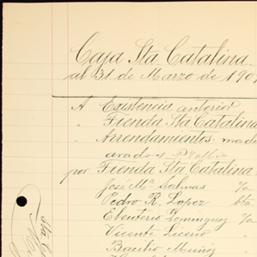 Caja Sta Catalina
al 31 de Marzo de 190
A Existencia anterior
" Tienda Sta Catalina
" Arrendamientos
por Tienda Sta Catalina
José Ma Salinas
Pedro R. Lopez
Eleuterio Dominguez
Vicente Lucero
Basilio Muñiz